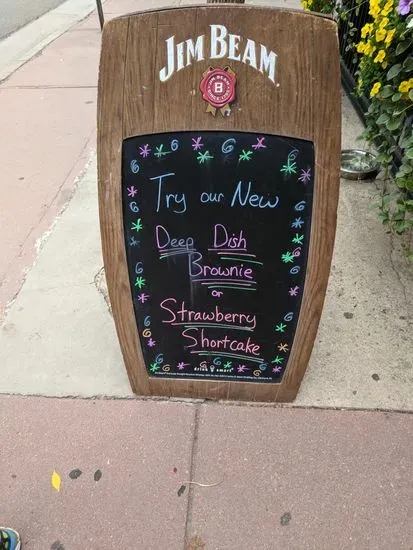 JIM BEAM
B
Try our New
Deep Dish
Brownie
or
Strawberry
Shortcake
drink smart